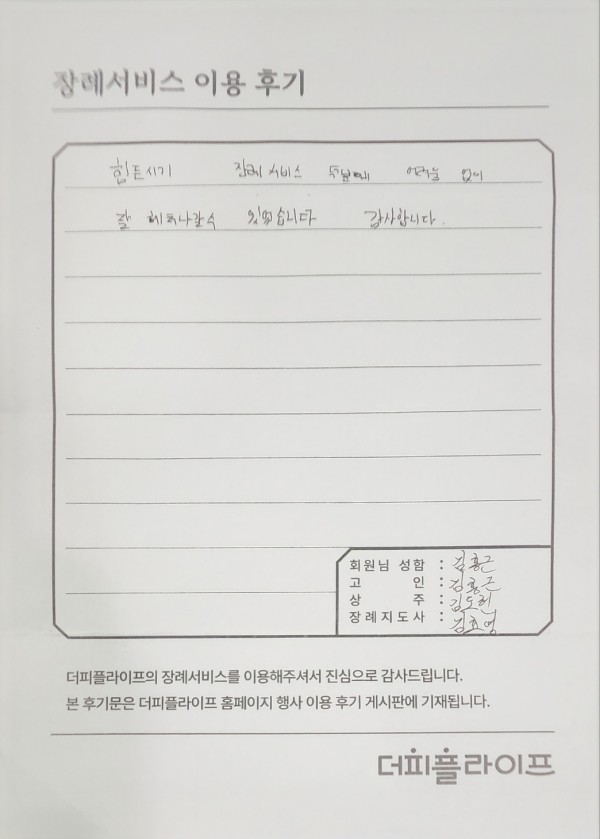 장례서비스 이용 후기
힘든시기 장례서비스 덕분에 어려움 없이
잘 헤쳐나갈수 있었습니다 감사합니다.
회원님 성함 : 김홍근
고 인 : 김홍근
상 주 : 김도현
장례지도사 : 김효영
더피플라이프의 장례서비스를 이용해주셔서 진심으로 감사드립니다.
본 후기문은 더피플라이프 홈페이지 행사 이용 후기 게시판에 기재됩니다.
더피플라이프